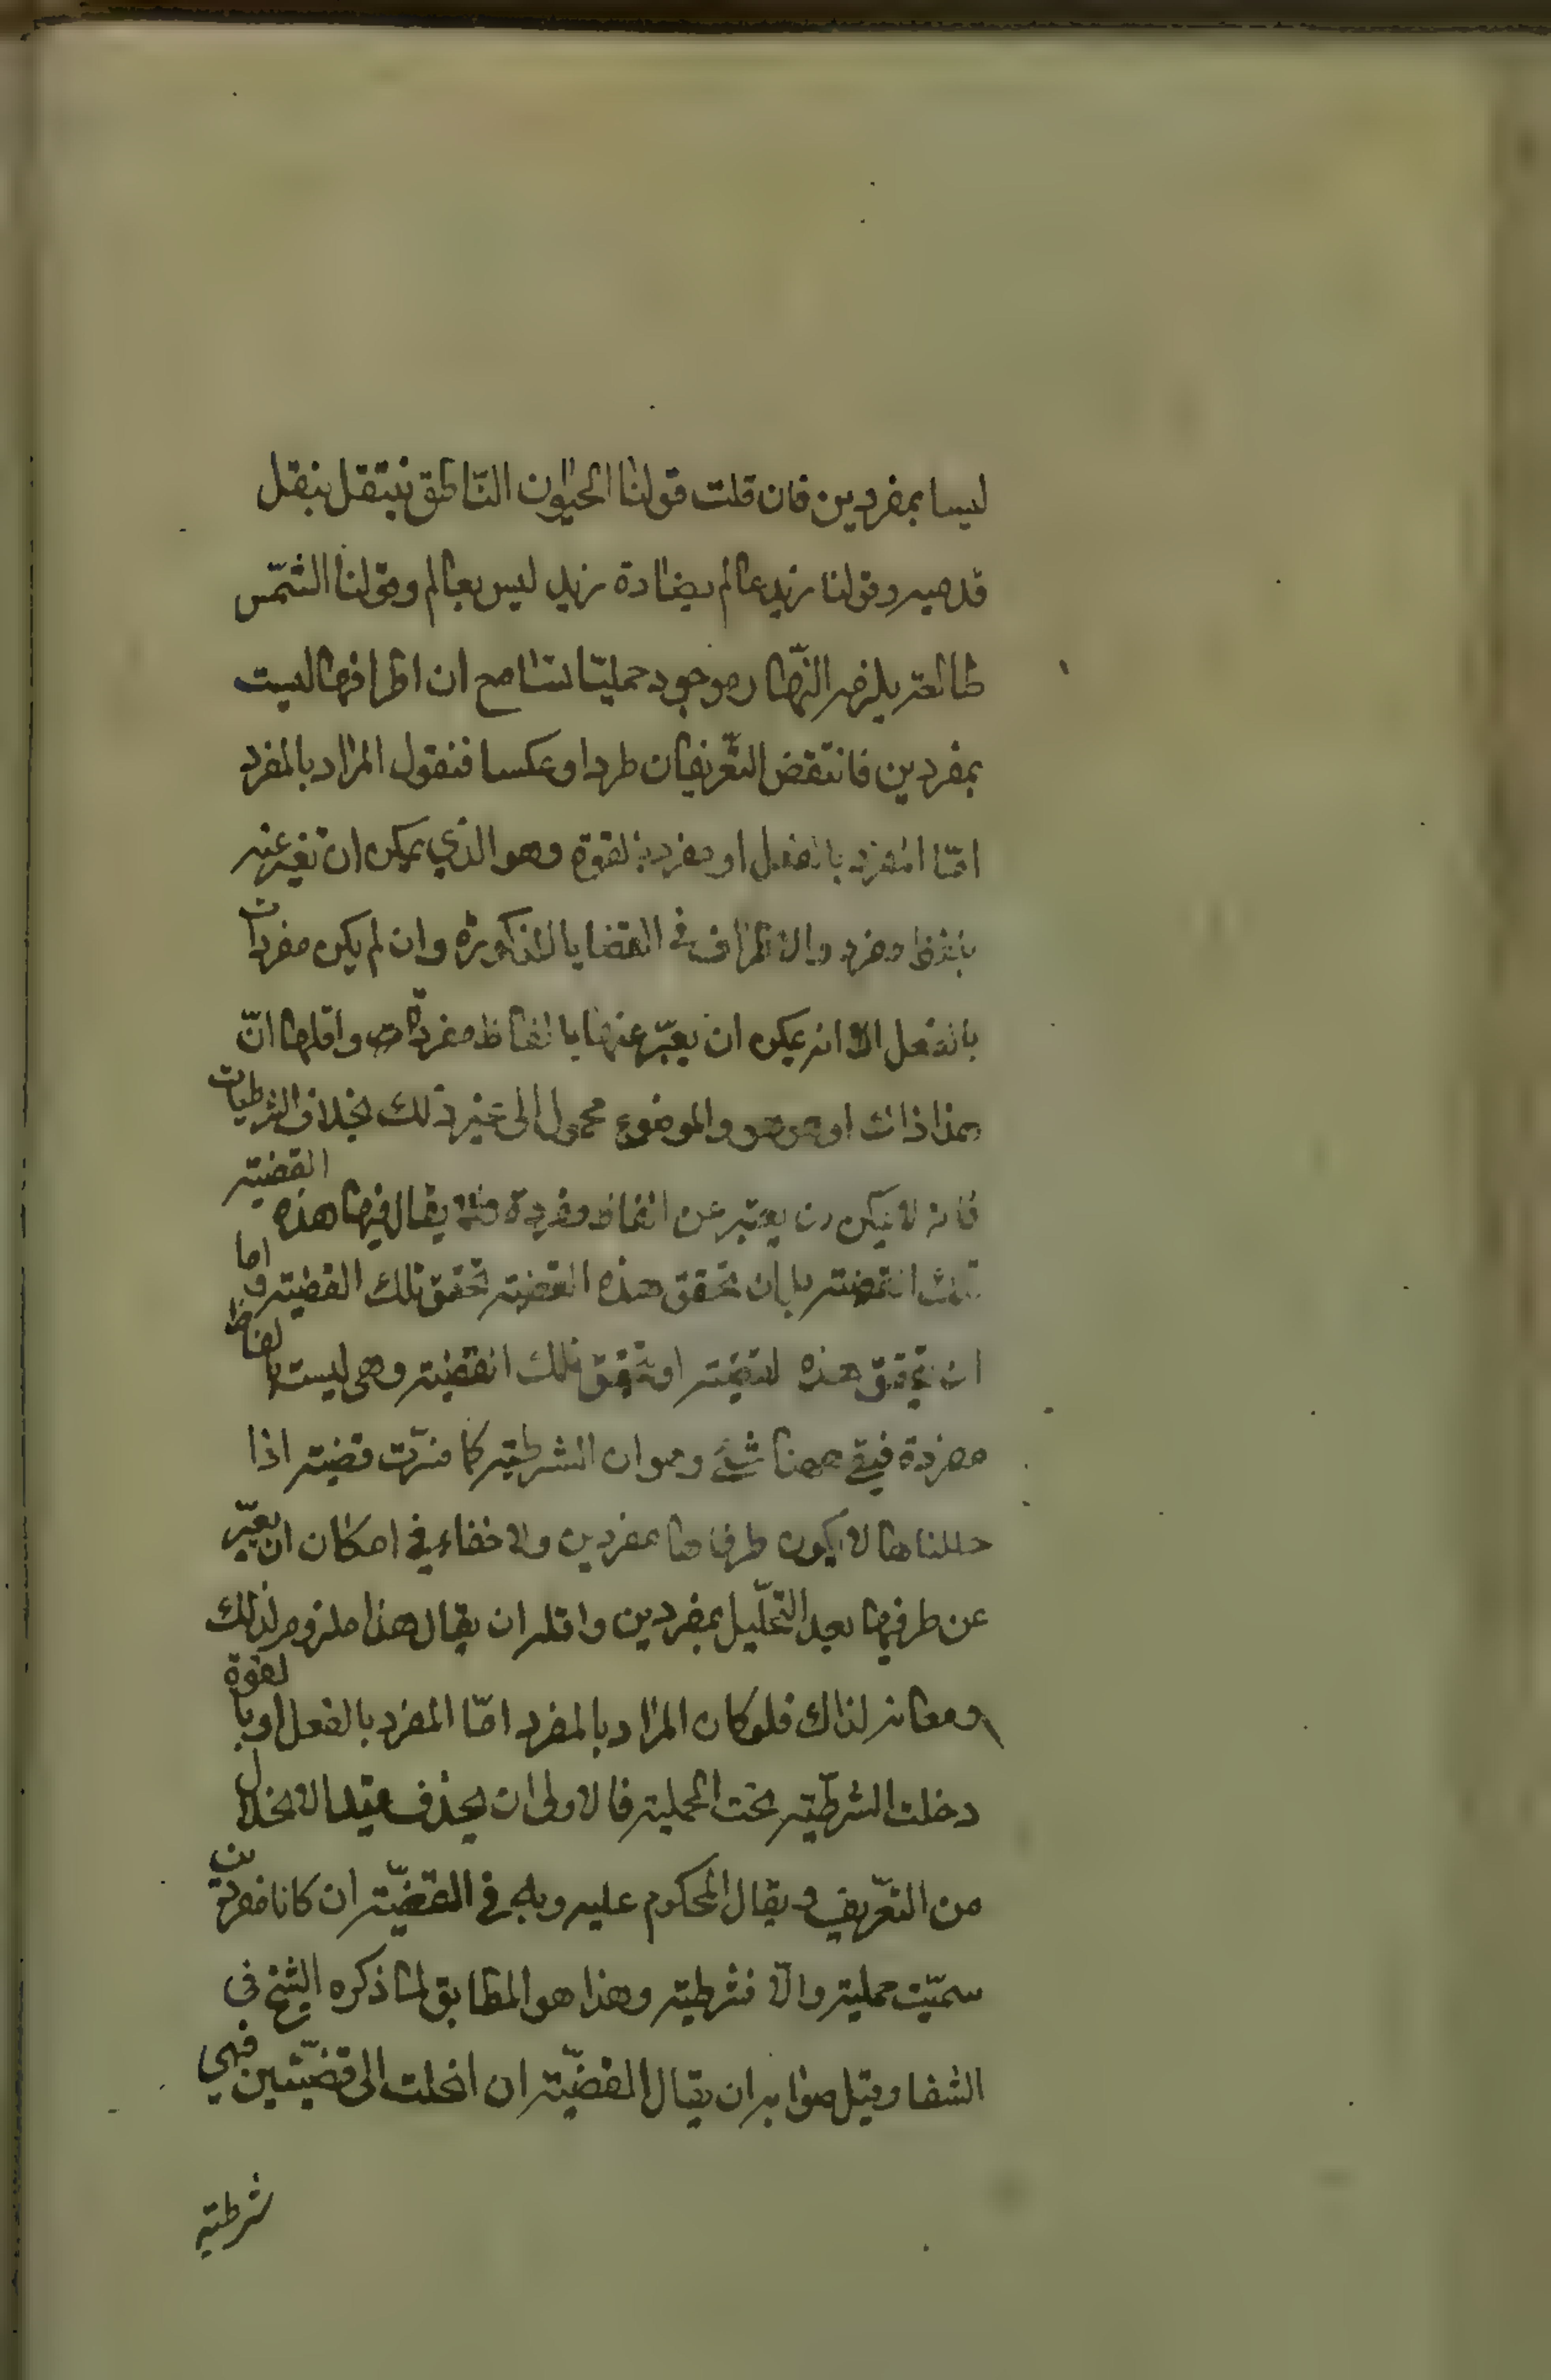 ليسا بمفردين فان قلت قولنا الحيوان الناطق ينتقل بنقل
قدميه وقولنا زيد عالم يضاده زيد ليس بعالم وقولنا الشمس
طالعة يلزمه النهار موجود حمليات مع ان اطرافها ليست
بمفردين فانتقض التعريفان طردا وعكسا فنقول المراد بالمفرد
امّا المفرد بالفعل او مفرد بالقوة وهو الذي يمكن ان يعبر عنه
بلفظ مفرد والاطراف في القضايا المذكورة وان لم يكن مفردات
بالفعل الا انه يمكن ان يعبّر عنها بالفاظ مفردة واقلها انّ
هذا ذاك او هو هو والموضوع محمول الى غير ذلك بخلاف الشرطيات
فانه لا يمكن ان يعتبر عن الفاظ مفردة فلا يقال فيها هذه القضية
تلك القضية بل ان تحقق هذه القضية تحقق تلك القضية واما
ان تحقق هذه القضية او تحقق تلك القضية وهي ليست بالفاظ
مفردة فبقي ههنا شئ وهو ان الشرطية كما فسّرت قضية اذا
حللناها لا يكون طرفاها بمفردين ولا خفاء في امكان ان يعبّر
عن طرفيها بعد التحليل بمفردين واقله ان يقال هذا ملزوم لذلك
ومعاند لذاك فلو كان المراد بالمفرد امّا المفرد بالفعل او بالقوة
دخلت الشرطيّة تحت الحملية فالاولى ان يحذف قيد الانحلال
من التعريف ويقال المحكوم عليه وبه في القضيّة ان كانا مفردين
سمّيت حملية والّا فشرطية وهذا هو المطابق لما ذكره الشيخ في
الشفا وقيل صوابه ان يقال القضيّة ان انحلت الى قضيّتين فهي
شرطية